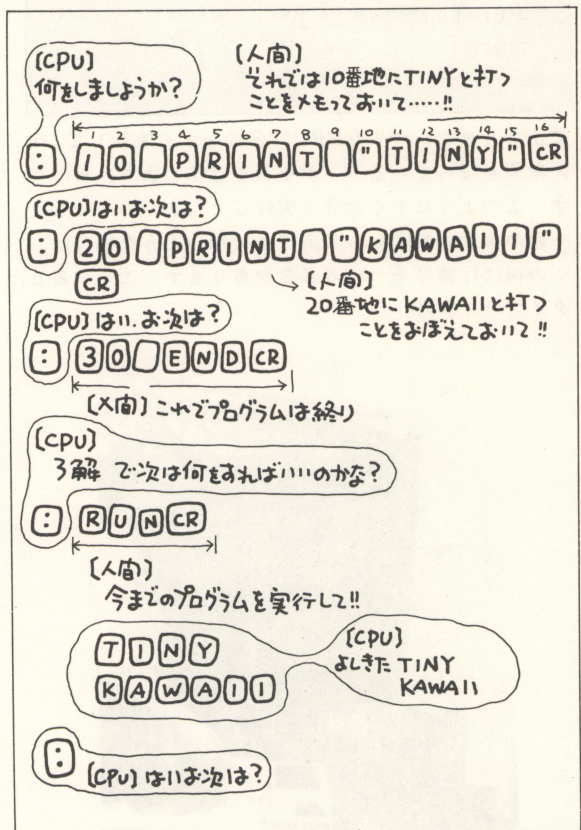 [CPU]
何をしましょうか?
[人間]
それでは10番地にTINYと打つ
ことをメモっておいて……!!
1 2 3 4 5 6 7 8 9 10 11 12 13 14 15 16
: 10 PRINT "TINY" CR
[CPU] はいお次は?
: 20 PRINT "KAWAII"
CR
[人間]
20番地にKAWAIIと打つ
ことをおぼえておいて!!
[CPU] はい、お次は?
: 30 END CR
[人間] これでプログラムは終り
[CPU]
了解 で次は何をすればいいのかな?
: RUN CR
[人間]
今までのプログラムを実行して!!
TINY
KAWAII
[CPU]
よしきた TINY
KAWAII
:
[CPU] はいお次は?